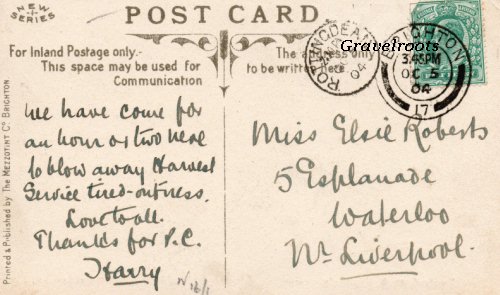 NEW SERIES
POST CARD
For Inland Postage only.—
This space may be used for
Communication
The address only
to be written here.
Gravelroots
ROTTINGDEAN
OC 5
04
BRIGHTON
3.45PM
OC 5
04
17
We have come for
an hour or two here
to blow away Harvest
Service tired-outness.
Love to all.
Thanks for P.C.
Harry
Miss Elsie Roberts
5 Esplanade
Waterloo
Nr. Liverpool.
Printed & Published by The Mezzotint Co. Brighton